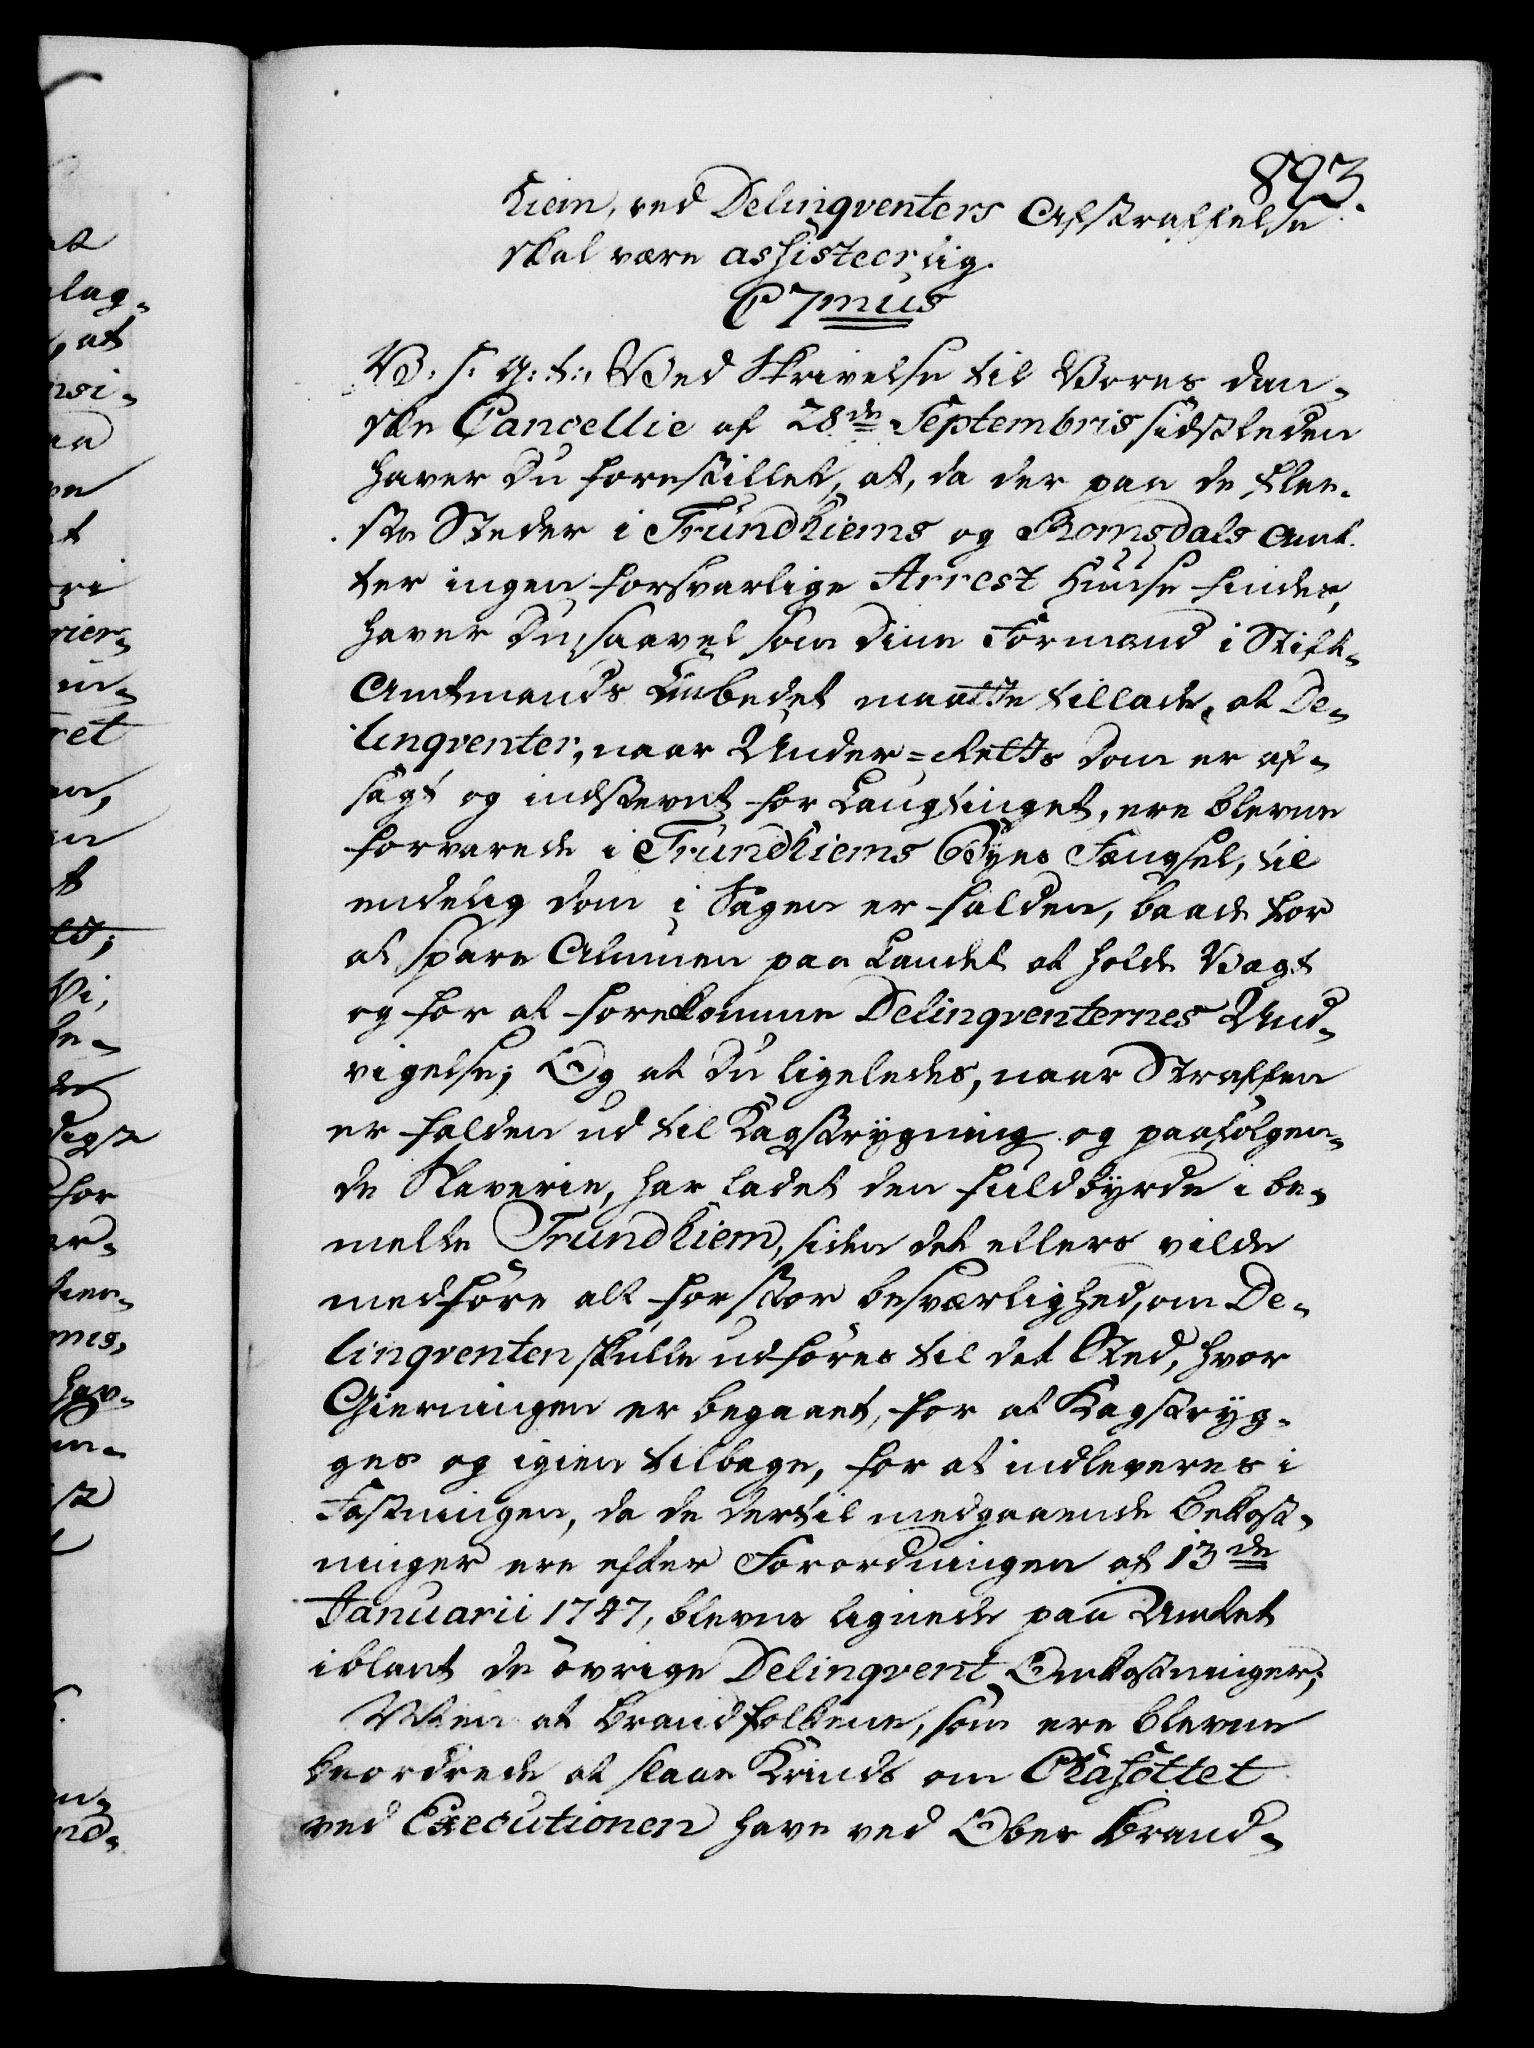 893.
kiem, ved Delinqventers Afstraffelse
skal være assisteerlig.
C 7mus
V. s. G: t:, Ved Skrivelse til Vores dan-
ske Cancellie af 28de Septembris sidstleden
haver Du forestillet, at, da der paa de flee-
ste Steder i Trundhiems og Romsdals Amt
ter ingen forsvarlige Arrest Huuse findes,
haver Du, saavel som Din Formand i Stift-
Amtmands Embedet maatte tillade, at De-
linqventer, naar Under-Retts Dom er af-
sagt og indstevnt for Laugtinget, ere blevne
forvarede i Trundhiems Byes Fængsel, til
endelig Dom i Sagen er falden, baade for
at spare Almuen paa Landet at holde Vagt
og for at forekomme Delinqventernes Und-
vigelse; Og at Du ligeledes, naar Straffen
er falden ud til Kagstrygning og paafølgen-
de Slaverie, har ladet den fuldbyrde i be-
melte Trundhiem, siden det ellers vilde
medføre alt for stor besværlighed, om De-
linqventen skulle udføres til det Sted, hvor
Gierningen er begaaet, for at Kagstryg-
ges og igien tilbage, for at indleveres i
Fæstningen, da de dertil medgaaende Bekost-
ninger ere efter Forordningen af 13de
Januarii 1747, blevne lignede paa Amtet
iblant de øvrige Delinqvent Omkostninger;
Men at Brandfolkene, som ere blevne
beordrede at slaae Kreds om Chafottet
ved Executionen have ved Ober Brand-